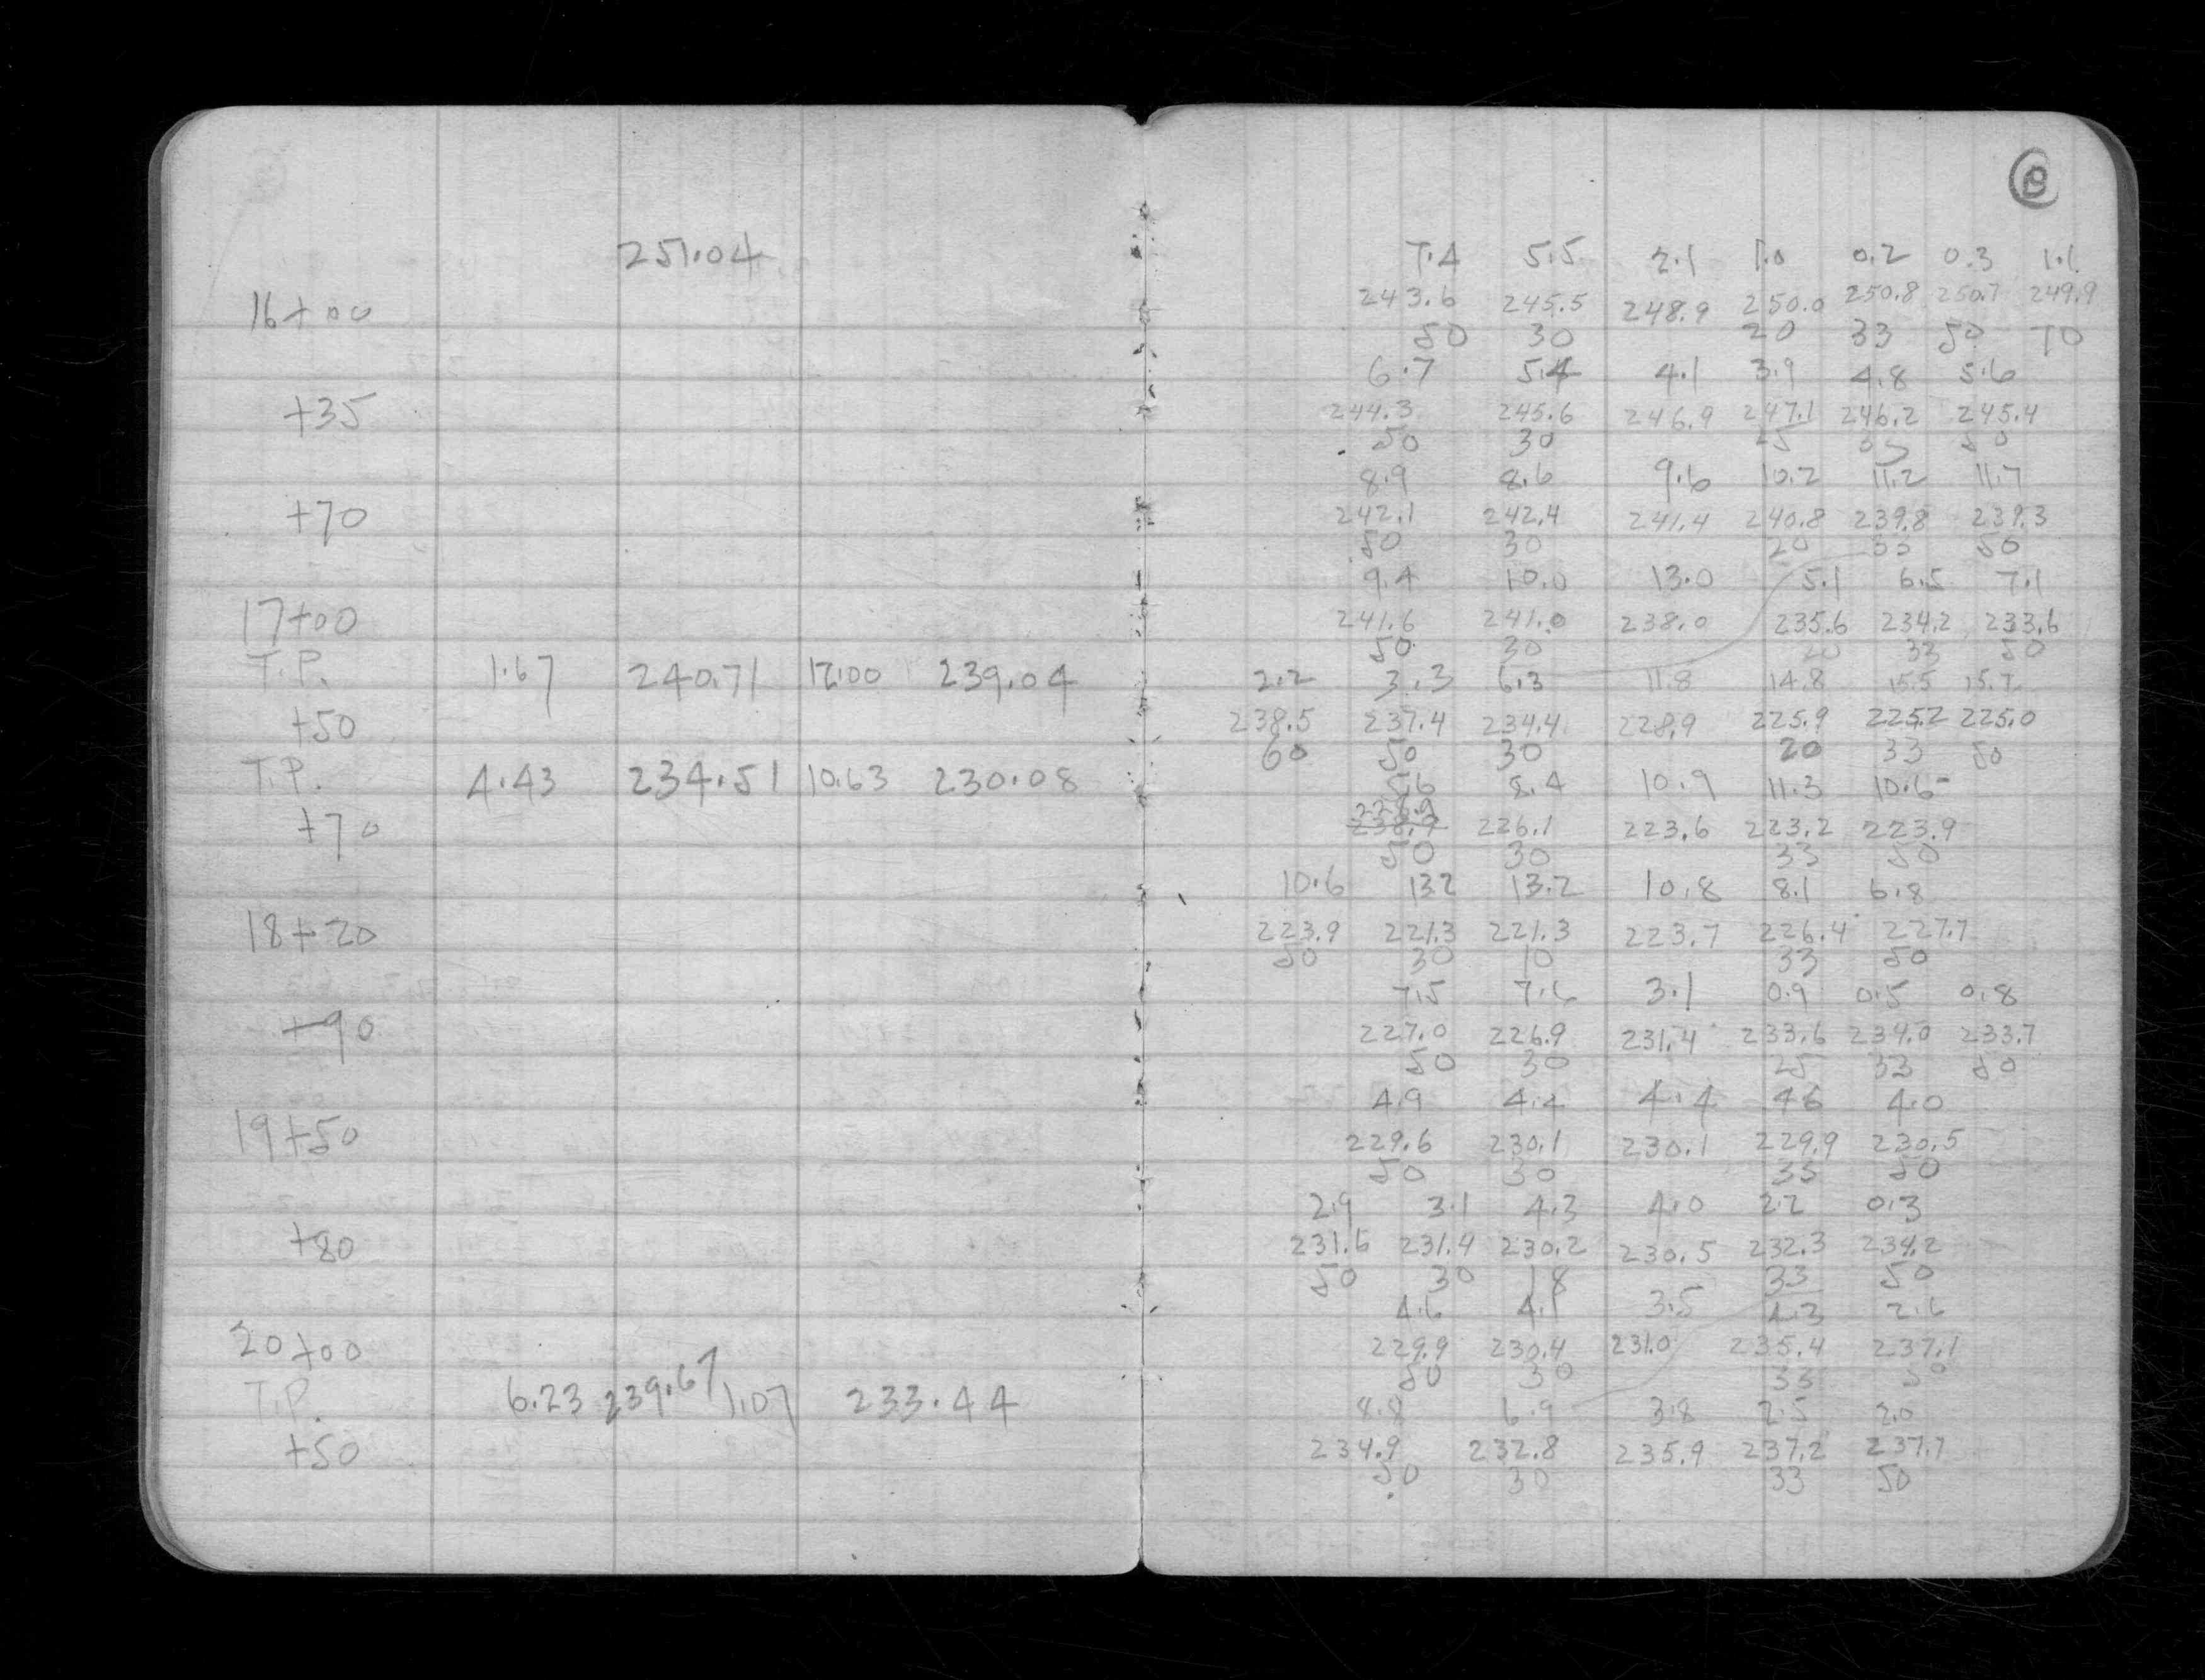 251.04
16+00
+35
+70
17+00
T.P. 1.67 240.71 12.00 239.04
+50
T.P. 4.43 234.51 10.63 230.08
+70
18+20
+90
19+50
+80
20+00
T.P. 6.23 239.67 1.07 233.44
+50
7.4 5.5 2.1 1.0 0.2 0.3 1.1
243.6 245.5 248.9 250.0 250.8 250.7 249.9
50 30 20 33 50 70
6.7 5.4 4.1 3.9 4.8 5.6
244.3 245.6 246.9 247.1 246.2 245.4
50 30 25 33 50
8.9 8.6 9.6 10.2 11.2 11.7
242.1 242.4 241.4 240.8 239.8 239.3
50 30 20 33 50
9.4 10.0 13.0 5.1 6.5 7.1
241.6 241.0 238.0 235.6 234.2 233.6
50 30 20 33 50
2.2 3.3 6.3 11.8 14.8 15.5 15.7
238.5 237.4 234.4 228.9 225.9 225.2 225.0
60 50 30 20 33 50
5.6 8.4 10.9 11.3 10.6
228.9
238.9 226.1 223.6 223.2 223.9
50 30 33 50
10.6 132 13.2 10.8 8.1 6.8
223.9 221.3 221.3 223.7 226.4 227.7
50 30 10 33 50
7.5 7.6 3.1 0.9 0.5 0.8
227.0 226.9 231.4 233.6 234.0 233.7
50 30 25 33 50
4.9 4.4 4.4 4.6 4.0
229.6 230.1 230.1 229.9 230.5
50 30 33 50
2.9 3.1 4.3 4.0 2.2 0.3
231.6 231.4 230.2 230.5 232.3 234.2
50 30 18 33 50
4.6 4.1 3.5 4.3 2.6
229.9 230.4 231.0 235.4 237.1
50 30 33 50
8.8 6.9 3.8 2.5 2.0
234.9 232.8 235.9 237.2 237.7
50 30 33 50